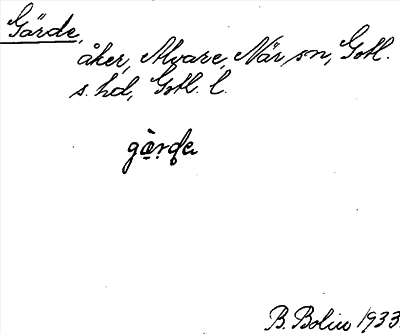 Gärde,
åker, Alvare, När sn, Gotl.
s. hd, Gotl. l.
gärde
B. Bolin 1933